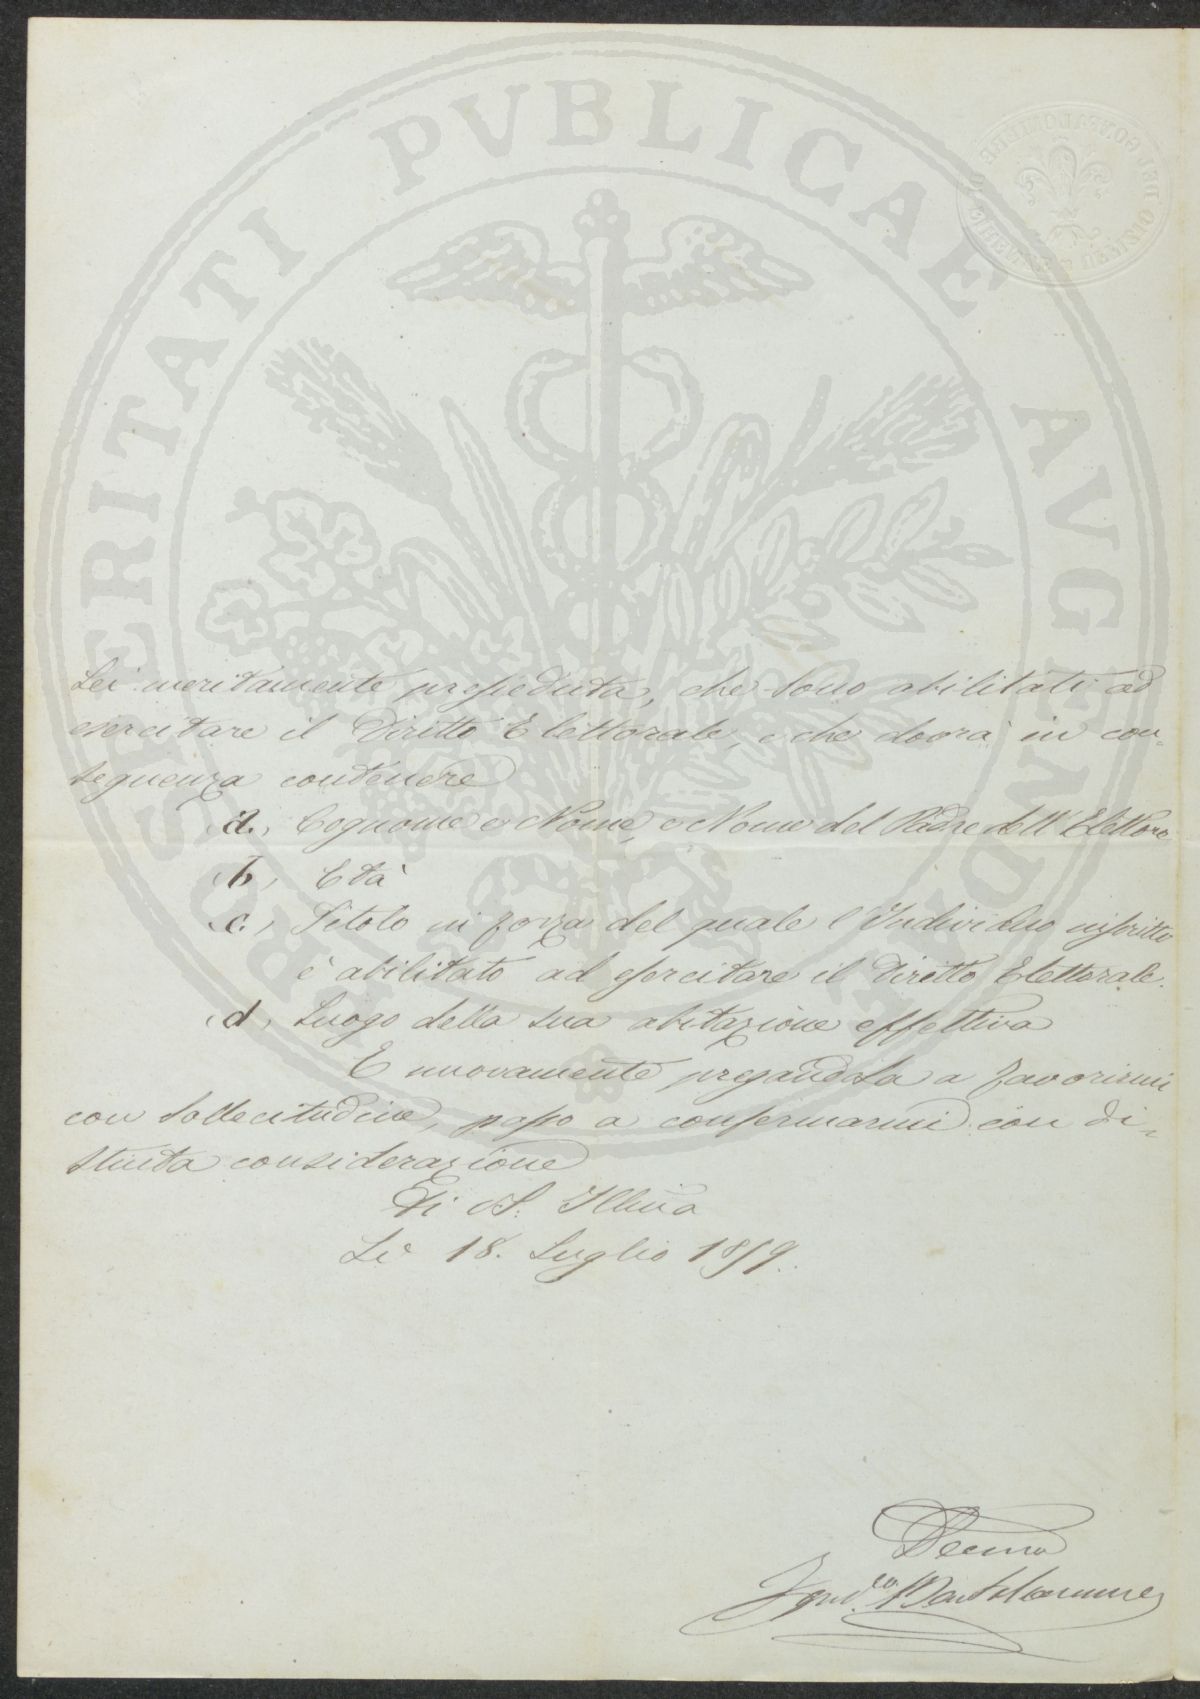 PROSPERITATI PVBLICAE AVGENDAE
Lei meritamente presieduta, che sono abilitati ad
esercitare il Diritto Elettorale, e che dovrà in con-
seguenza contenere
a, Cognome e Nome, e Nome del Padre dell' Elettore
b, Età
c, Titolo in forza del quale l'Individuo inscritto
è abilitato ad esercitare il Diritto Elettorale.
d, Luogo della sua abitazione effettiva
E nuovamente pregandola a favorirmi
con sollecitudine, passo a confermarmi con di-
stinta considerazione
Di S. Illma
Li 18. Luglio 1859.